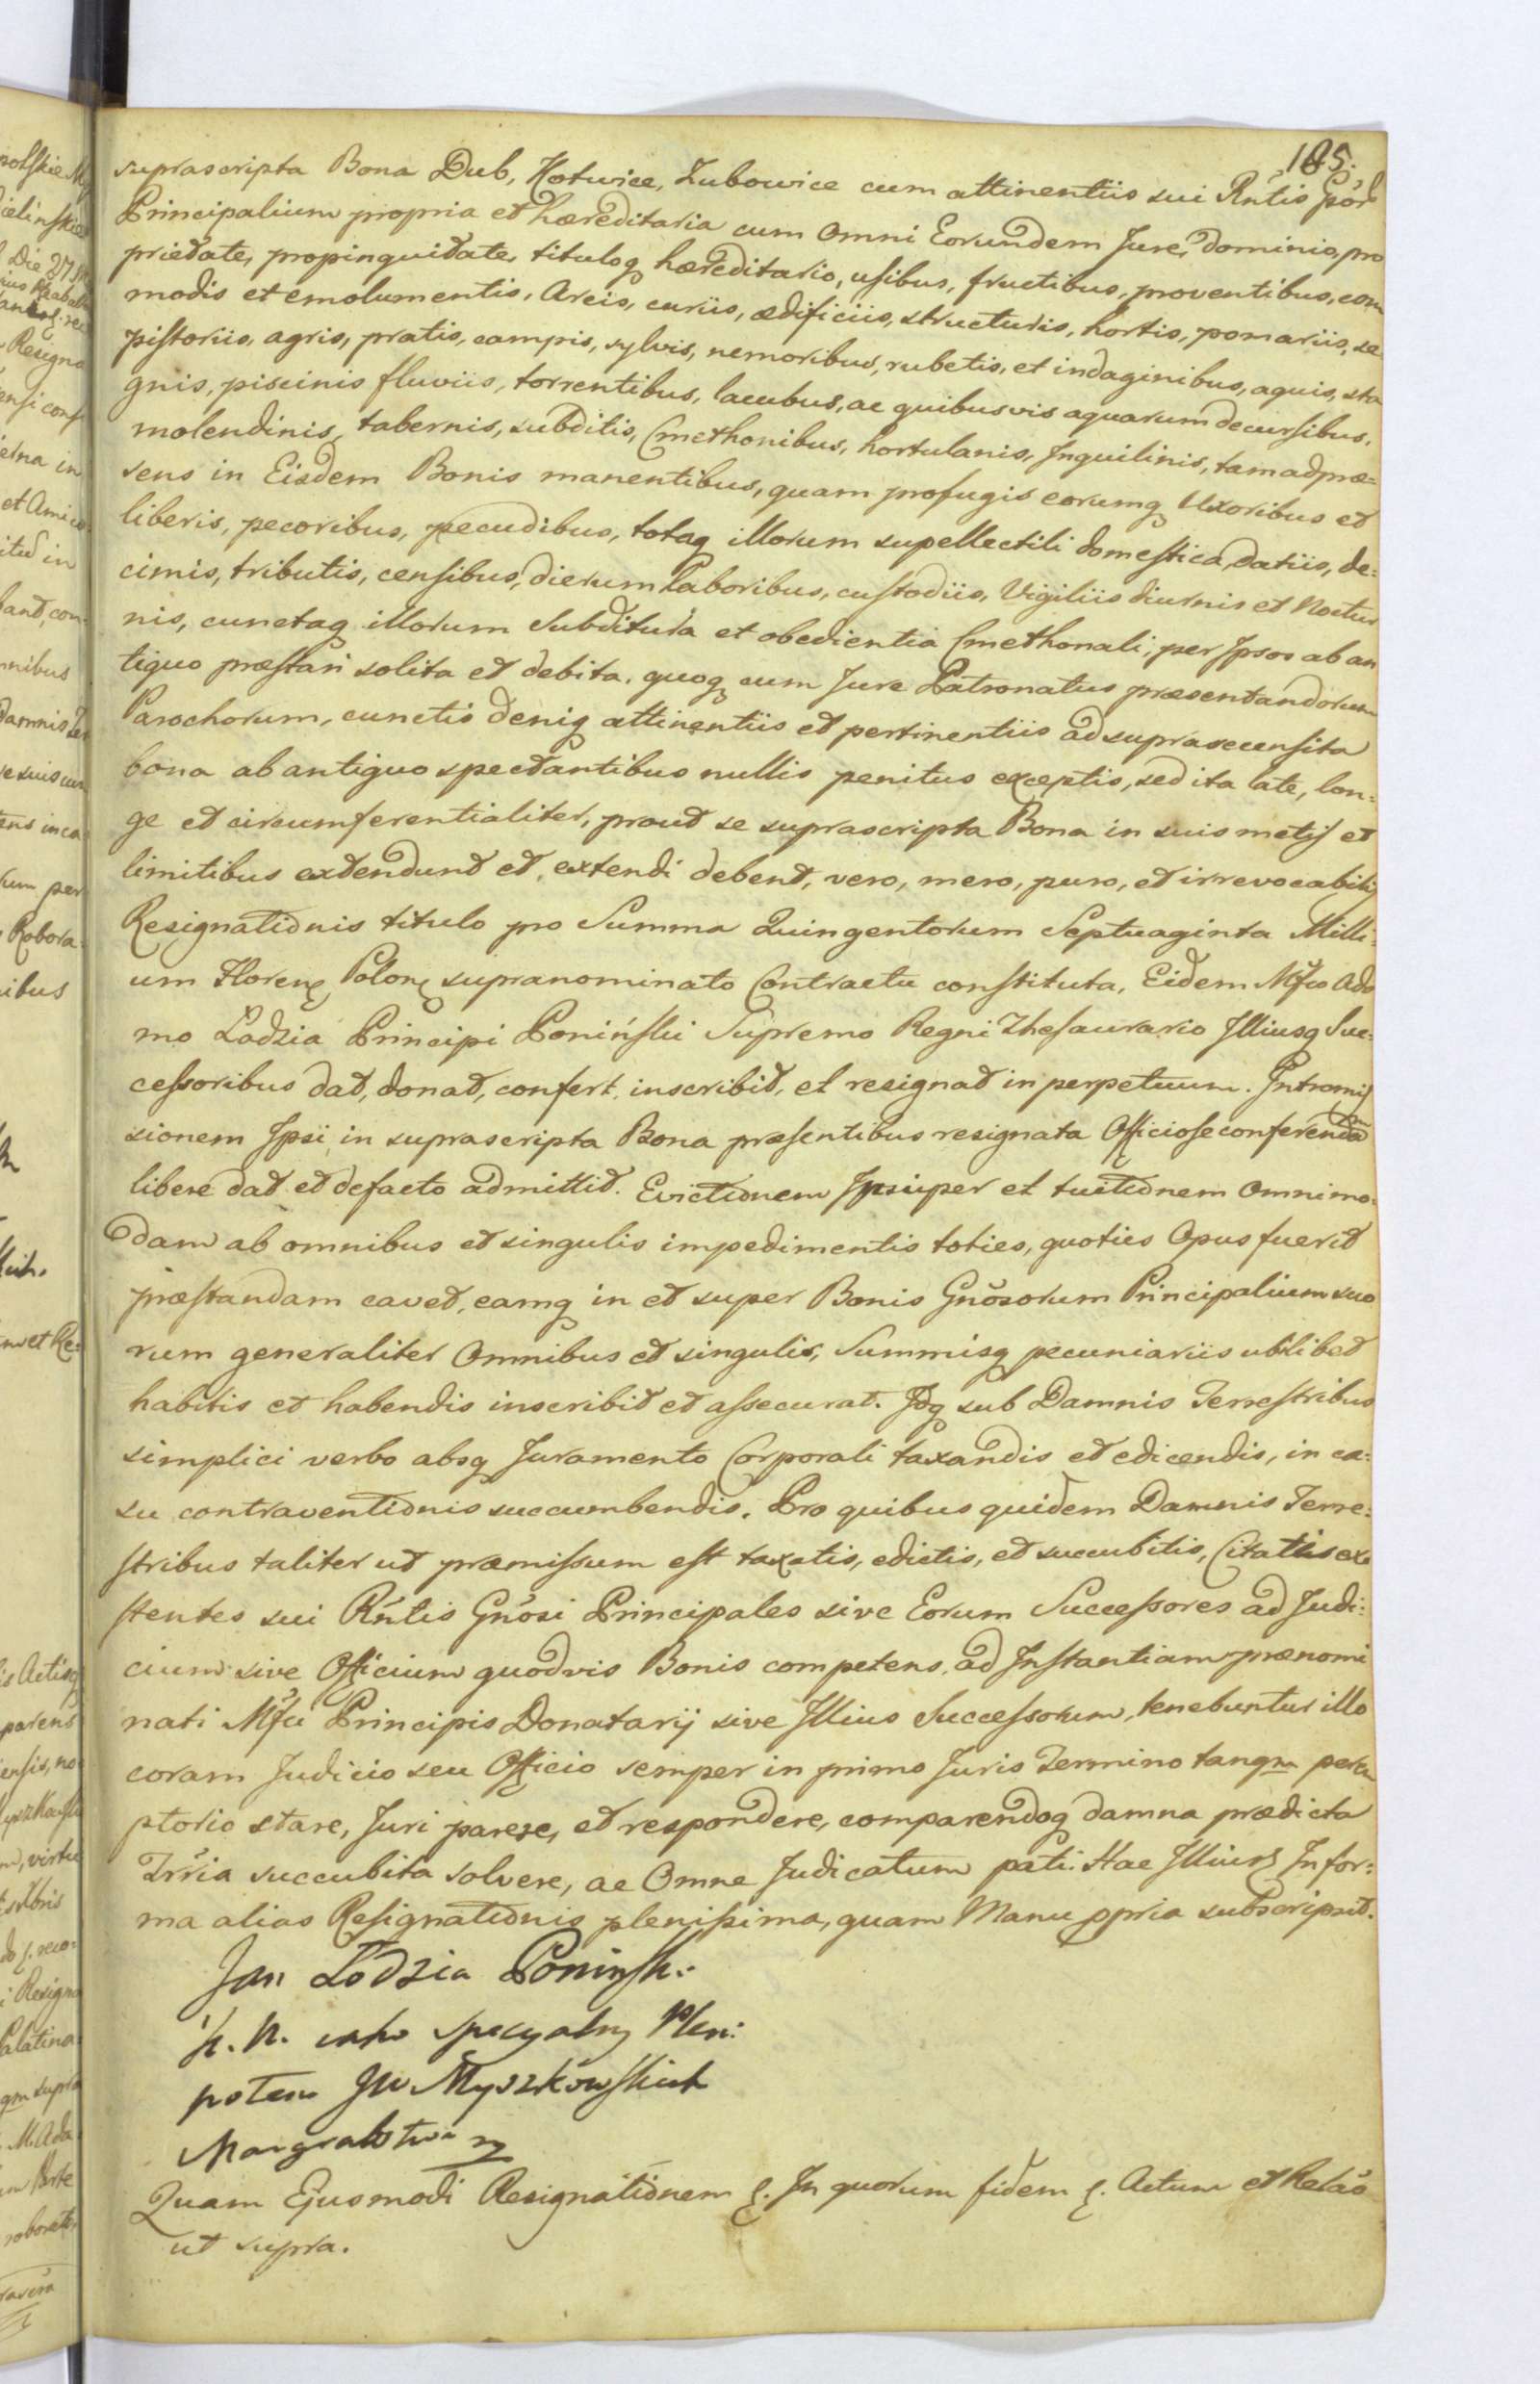 185.
suprascripta Bona Dub, Kotwice, Zubowice cum attinentiis sui Rńtis Gńor
Principalium propria et hæreditaria cum omni Eorundem Jure, dominio, pro
prietate, propinquitate, tituloq hæreditario, usibus, fructibus, proventibus, com
modis et emolumentis, Areis, curiis, ædificiis, structuris, hortis, pomariis, se
pistoriis, agris, pratis, campis, sylvis, nemoribus, rubetis, et indaginibus, aquis, sta
gnis, piscinis fluviis, torrentibus, lacubus, ac quibusvis aquarum decursibus,
molendinis, tabernis, subditis, Cmethonibus, hortulanis, Inquilinis, tam ad præ=
sens in Eisdem Bonis manentibus, quam profugis eorumq Uxoribus et
liberis, pecoribus, pecudibus, totaq illorum supellectili domestica, datiis, de=
cimis, tributis, censibus, dierum laboribus, custodiis, Vigiliis diurnis et Noctur
nis, cunctaq illorum Subditura et obedientia Cmethonali, per Ipsos ab an
tiquo præstari solita et debita, quoq cum Jure Patronatus præsentandorum
Parochorum, cunctis deniq attinentiis et pertinentiis ad suprarecensita
bona ab antiquo spectantibus nullis penitus exceptis, sed ita late, lon=
ge et circumferentialiter, prout se suprascripta Bona in suis metis et
limitibus extendunt et extendi debent, vero, mero, puro, et irrevocabili
Resignationis titulo pro Summa Quingentorum Septuaginta Milli=
um Floren Polon supranominato Contractu constituta, Eidem Mfco Ada
mo Łodzia Principi Poniński Supremo Regni Thesaurario Illiusq Suc=
cessoribus dat, donat, confert, inscribit, et resignat in perpetuum. Intromis
sionem Ipsi in suprascripta Bona præsentibus resignata Officiose conferendam
libere dat et defacto admittit. Evictionem Insuper et tuitionem omnimo=
dam ab omnibus et singulis impedimentis toties, quoties Opus fuerit
præstandam cavet, eamq in et super Bonis Gnősorum Principalium suo
rum generaliter Omnibus et singulis, Summisq pecuniariis ubilibet
habitis et habendis inscribit et assecurat. Idq sub Damnis Terrestribus
simplici verbo absq Juramento Corporali taxandis et edicendis, in ca=
su contraventionis succumbendis. Pro quibus quidem Damnis Terre=
stribus taliter ut præmissum est taxatis, edictis, et succubitis, Citati exi
stentes sui Rńtis Gnősi Principales sive Eorum Successores ad Judi=
cium sive Officium quodvis Bonis competens, ad Instantiam prænomi
nati Mfci Principis Donatarij sive Illius Successorum, tenebuntur illo
coram Judicio seu Officio semper in primo Juris Termino tanqm perem
ptorio stare, Juri parere, et respondere, comparendoq damna prædicta
Trria succubita solvere, ac Omne Judicatum pati. Hac Illius Infor=
ma alias Resignationis plenissima, quam Manu ppria subscripsit.
Jan Łodzia Ponińsk:
k. K. iako specyalny Plen:
potent JW Myszkowskich
Margrabstwa
Quam Ejusmodi Resignationem In quorum fidem Actum et Relaő
ut supra.